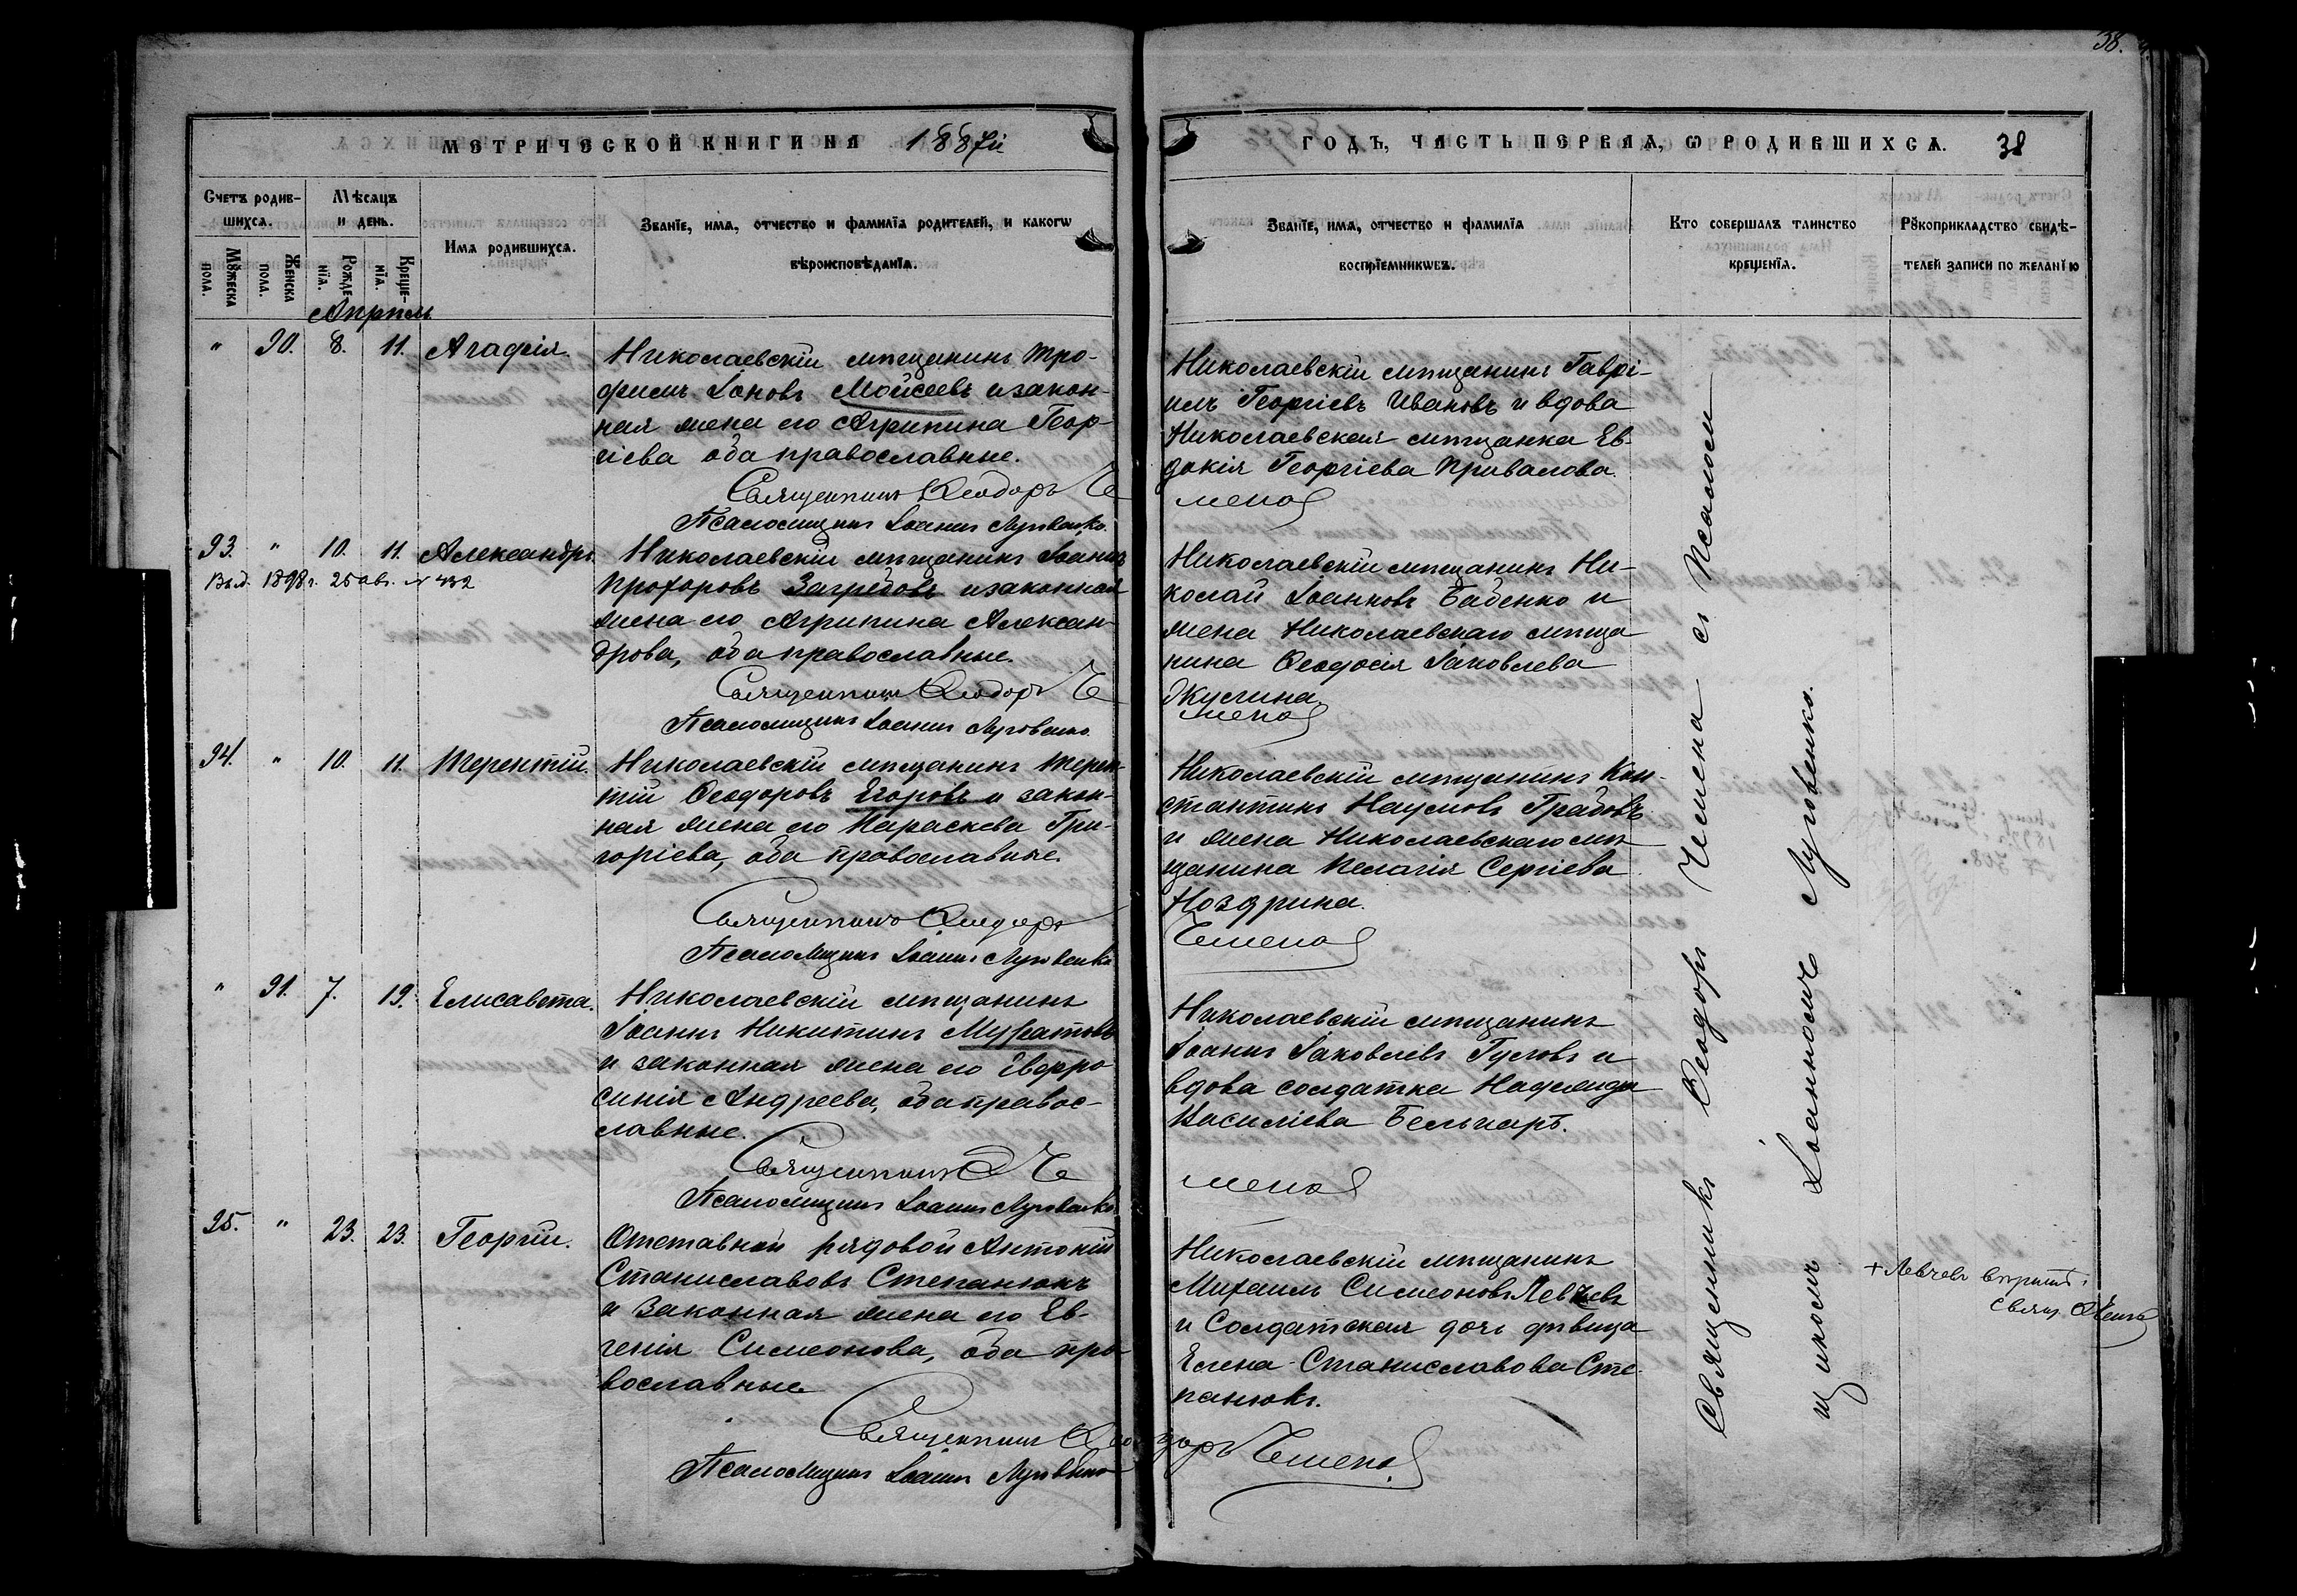 38.
МЕТРИЧЕСКОЙ КНИГИ НА 1887й
ГОДЪ, ЧАСТЬ ПЕРВАЯ, Ѡ РОДИВШИХСЯ. 38
Счетъ родив-
шихся.
Мѣсяцъ
и день.
Имя родившихся.
Званїе, имя, отчество и фамилїя родителей, и какогѡ
вѣроисповѣданїя.
Мꙋжеска
пола.
Женска
пола.
Рожде
нїя.
Креще-
нїя.
Званїе, имя, отчество и фамилїя
воспрїемникѡвъ.
Кто совершалъ таинство
крещенїя.
Рꙋкоприкладство свидѣ-
телей записи по желанїю
Апрѣль
" 90. 8. 11. Агафія.
Николаевскій мѣщанинъ Тро-
фимъ Іоновъ Мойсеевъ и закон-
ная жена его Агрипина Геор-
гіева оба православные.
Священникъ Ѳеодоръ Че
Псаломщикъ Іоаннъ Луговенко.
Николаевскій мѣщанинъ Гаврі-
илъ Георгіевъ Ивановъ и вдова
Николаевская мѣщанка Ев-
докія Георгіева Привалова.
мена
93. " 10. 11. Александръ.
Выд. 1898 г. 25 авг. № 432
Николаевскій мѣщанинъ Іоаннъ
Прохоровъ Загребовъ и законная
жена его Агрипина Алексан-
дрова, оба православные.
Священникъ Ѳеодоръ Че
Псаломщикъ Іоаннъ Луговенко.
Николаевскій мѣщанинъ Ни-
колай Іоанновъ Бабенко и
жена Николаевскаго мѣща
нина Ѳеодосія Іаковлева
Жукина.
мена
94. " 10. 11. Терентій.
Николаевскій мѣщанинъ Терен-
тій Ѳеодоровъ Егоровъ и закон-
ная жена его Параскева Гри-
горіева, оба православные.
Священникъ Ѳеодоръ
Псаломщикъ Іоаннъ Луговенко
Николаевскій мѣщанинъ Кон-
стантинъ Наумовъ Грабовъ
и жена Николаевскаго мѣ
щанина Пелагія Сергіева
Ноздрина.
Чемена
" 91. 7. 19. Елисавета.
Николаевскій мѣщанинъ
Іоаннъ Никитинъ Муратовъ
и законная жена его Евфро
синія Андреева, оба правос-
лавные.
Священникъ Ѳ Че
Псаломщикъ Іоаннъ Луговенко
Николаевскій мѣщанинъ
Іоаннъ Іаковлевъ Гусовъ и
вдова солдатка Надежда
Василіева Бельчаръ.
мена
95. " 23. 23. Георгій.
Отставной рядовой Антоній
Станиславовъ Степанюкъ
и законная жена его Ев-
генія Симеонова, оба пра-
вославные
Священникъ Ѳео
доръ Чемена
Псаломщикъ Іоаннъ Луговенко
Николаевскій мѣщанинъ
Михаилъ Симеоновъ Левчевъ
и Солдатская дочь дѣвица
Елена Станиславова Сте-
панюкъ.
Священникъ Ѳеодоръ Чемена съ Псалом
щикомъ Іоанномъ Луговенко.
+ Левчевъ
Свящ. Ѳ Чемена